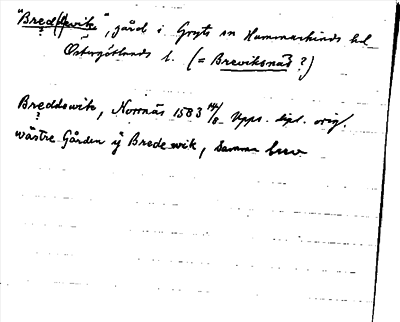 "Bred(d)evik", gård i Gryts sn Hammarkinds hd
Östergötlands l. (= Breviksnäs?)
Breddewik, Norrnäs 1583 14/8 Upps. dipl. orig.
wästre Gården ÿ Brede wik, samma brev